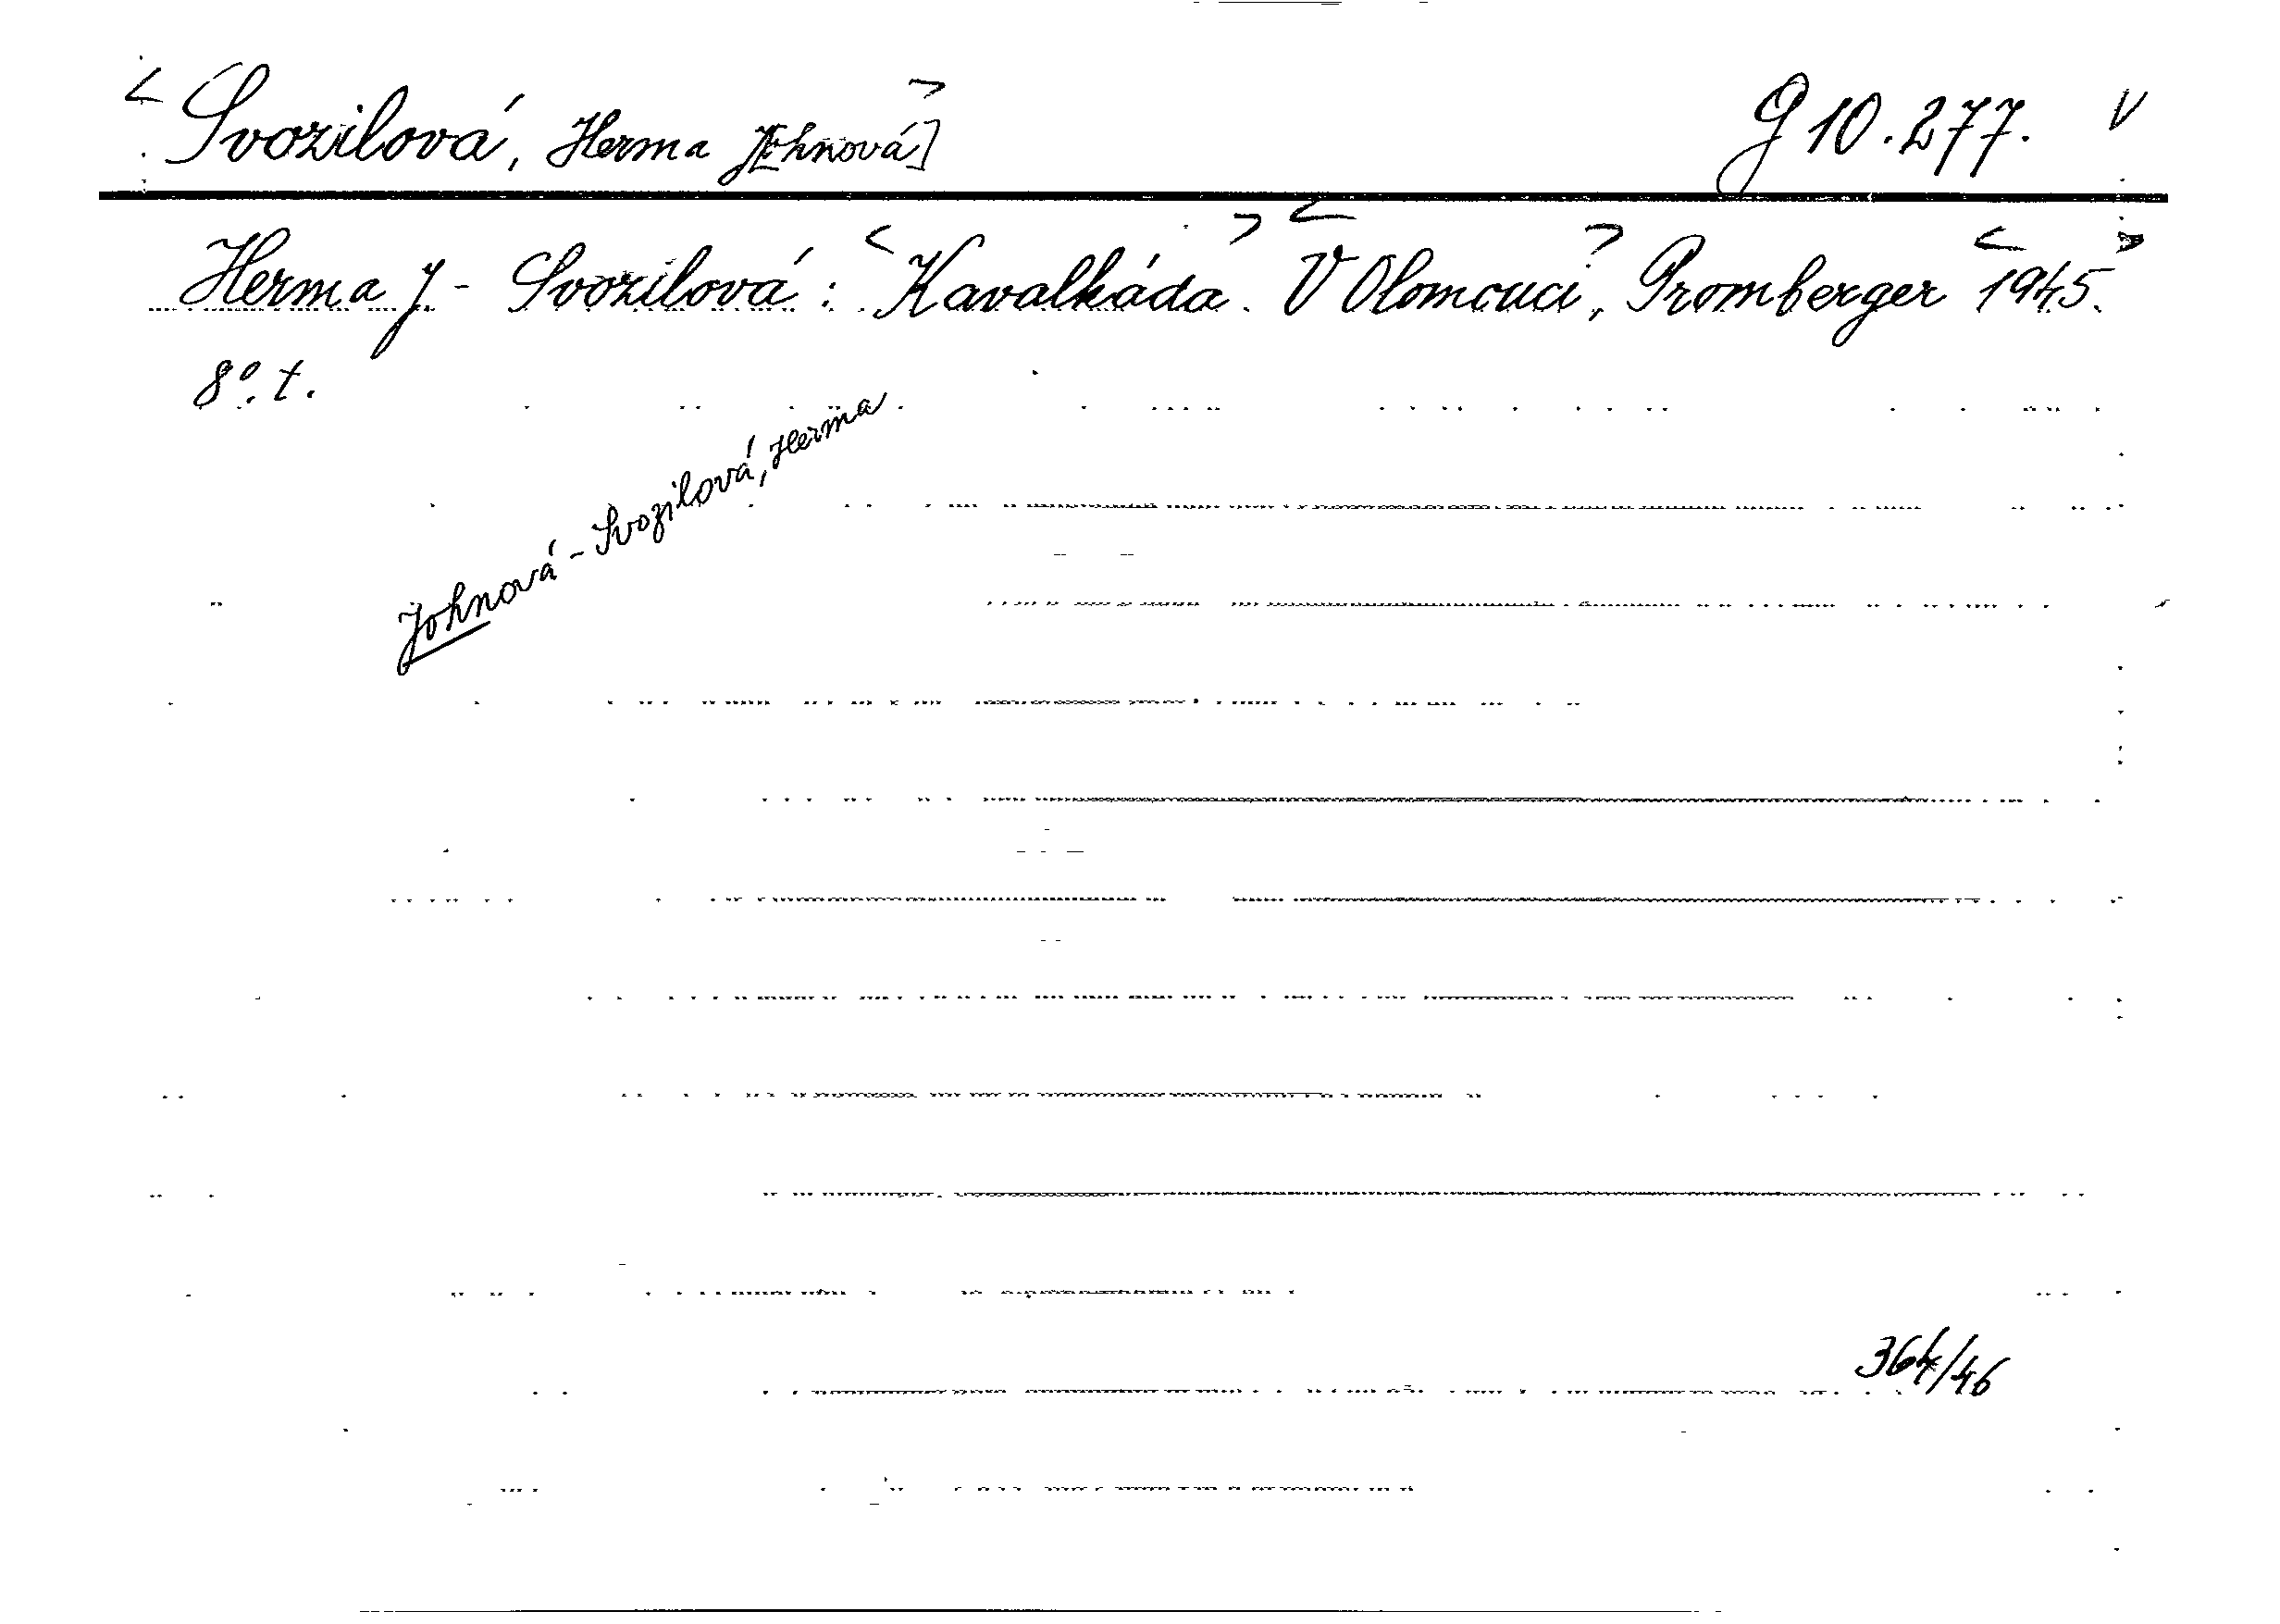 < Svozilová, Herma J[ohnová] > G 10.277. V
Herma J. - Svozilová: < Kavalkáda. > < V Olomouci, > Promberger < 1945. >
8°. t.
Johnová - Svozilová, Herma
364/46